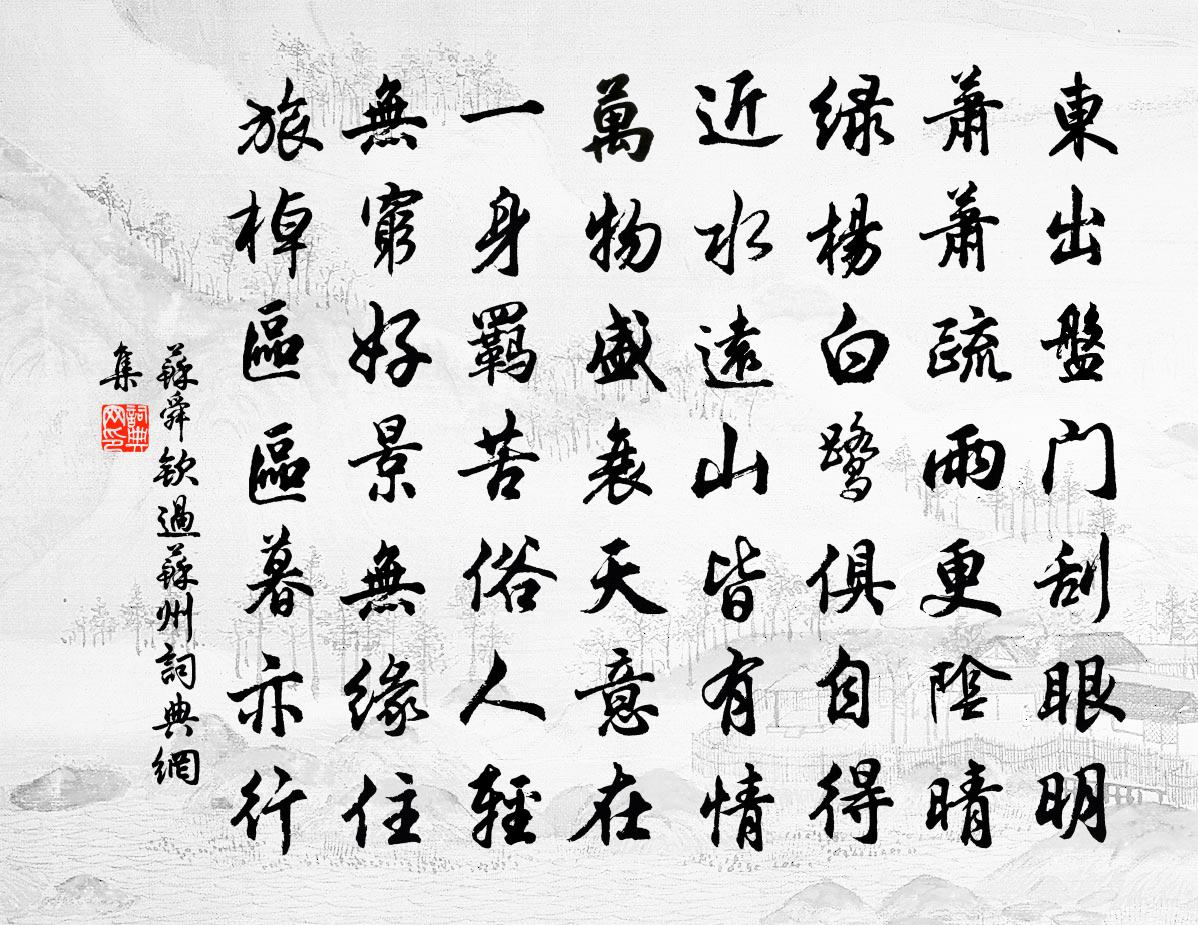 東出盤门刮眼明
蕭蕭疏雨更陰晴
绿楊白鷺俱自得
近水遠山皆有情
萬物盛衰天意在
一身羈苦俗人輕
無窮好景無緣住
旅棹區區暮亦行
蘇舜欽過蘇州詞典網
集
詞典
网印